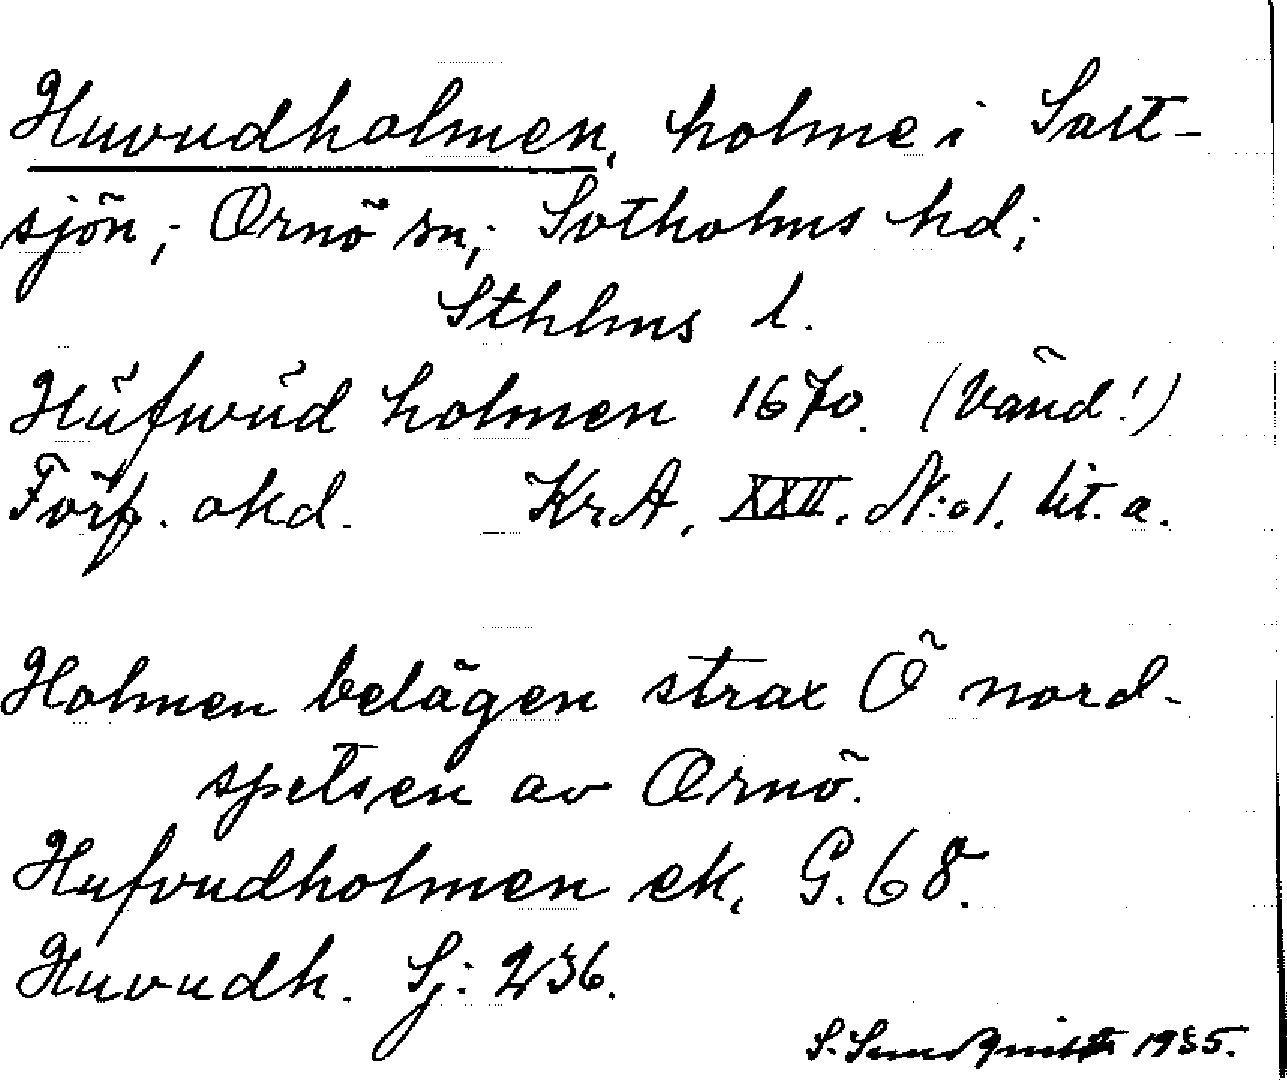 Huvudholmen, holme i Salt-
sjön; Ornö sn; Sotholms hd;
Sthlms l.
Hüfwüd holmen 1670. (Vänd!)
Förf. okd. Kr.A, XXII. N:o 1. lit. a.
Holmen belägen strax Ö nord-
spetsen av Ornö.
Hufvudholmen ek. G. 68.
Huvudh. Sj: 236.
S. Sundquist 1935.